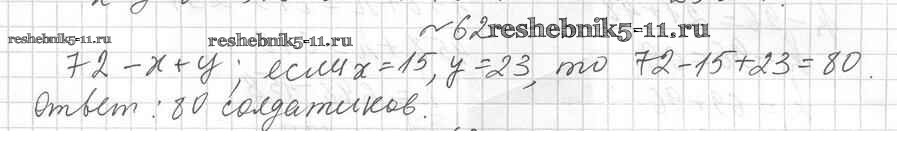 ~62 reshebnik5-11.ru
reshebnik5-11.ru reshebnik5-11.ru
72 - x + y ; если x = 15, y = 23, то 72 - 15 + 23 = 80.
Ответ : 80 солдатиков.